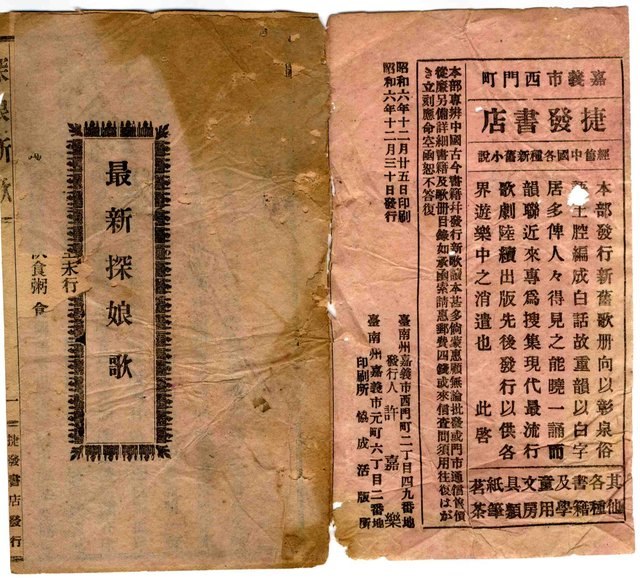 嘉義市西門町
捷發書店
經售中國各種新舊小說
本部發行新舊歌册向以彰泉俗
土腔編成白話故重韻以白字
居多俾人々得見之能曉一誦而
韻聯近來專爲搜集現代最流行
歌劇陸續出版先後發行以供各
界遊樂中之消遣也 此啓
其他各種書籍及學童用文房具類紙筆茗茶
本部專辨中國古今書籍幷發行新歌讀本甚多倘蒙惠顧無論批發或門市通信售價
從廉另備詳細書籍及歌册目錄如承函索請惠郵費四錢或來信查問須用往復はが
き立刻應命空函恕不答復
昭和六年十二月廿五日印刷
昭和六年十二月三十日發行
臺南州嘉義市西門町二丁目四九番地
發行人 許嘉樂
臺南州嘉義市元町六丁目二番地
印刷所 協成活版所
最新探娘歌
未行
食粥
探娘新歌
一 捷發書店發行